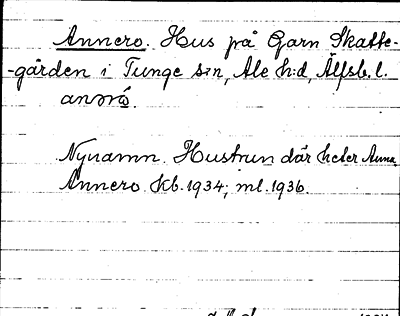 Annero. Hus på Garn Skatte-
-gården i Tunge s:n, Ale h:d, Älfsb. l.
Nynamn. Hustrun där heter Anna.
Annero kb. 1934; ml. 1936.